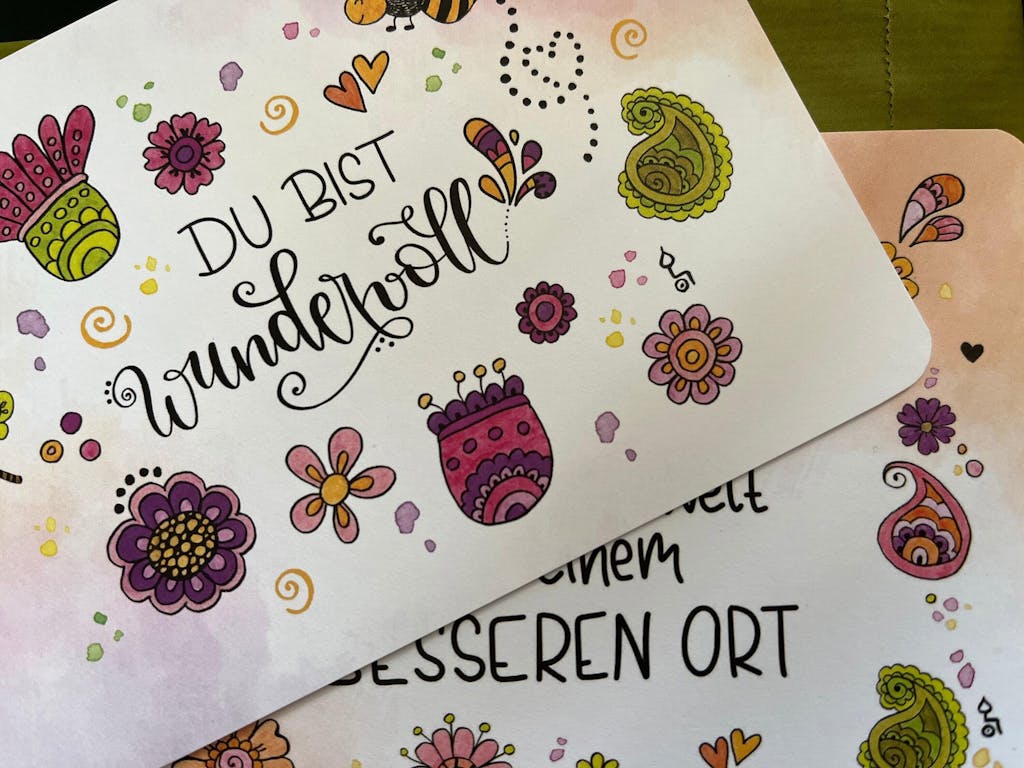 DU BIST
wundervoll
welt
einem
BESSEREN ORT